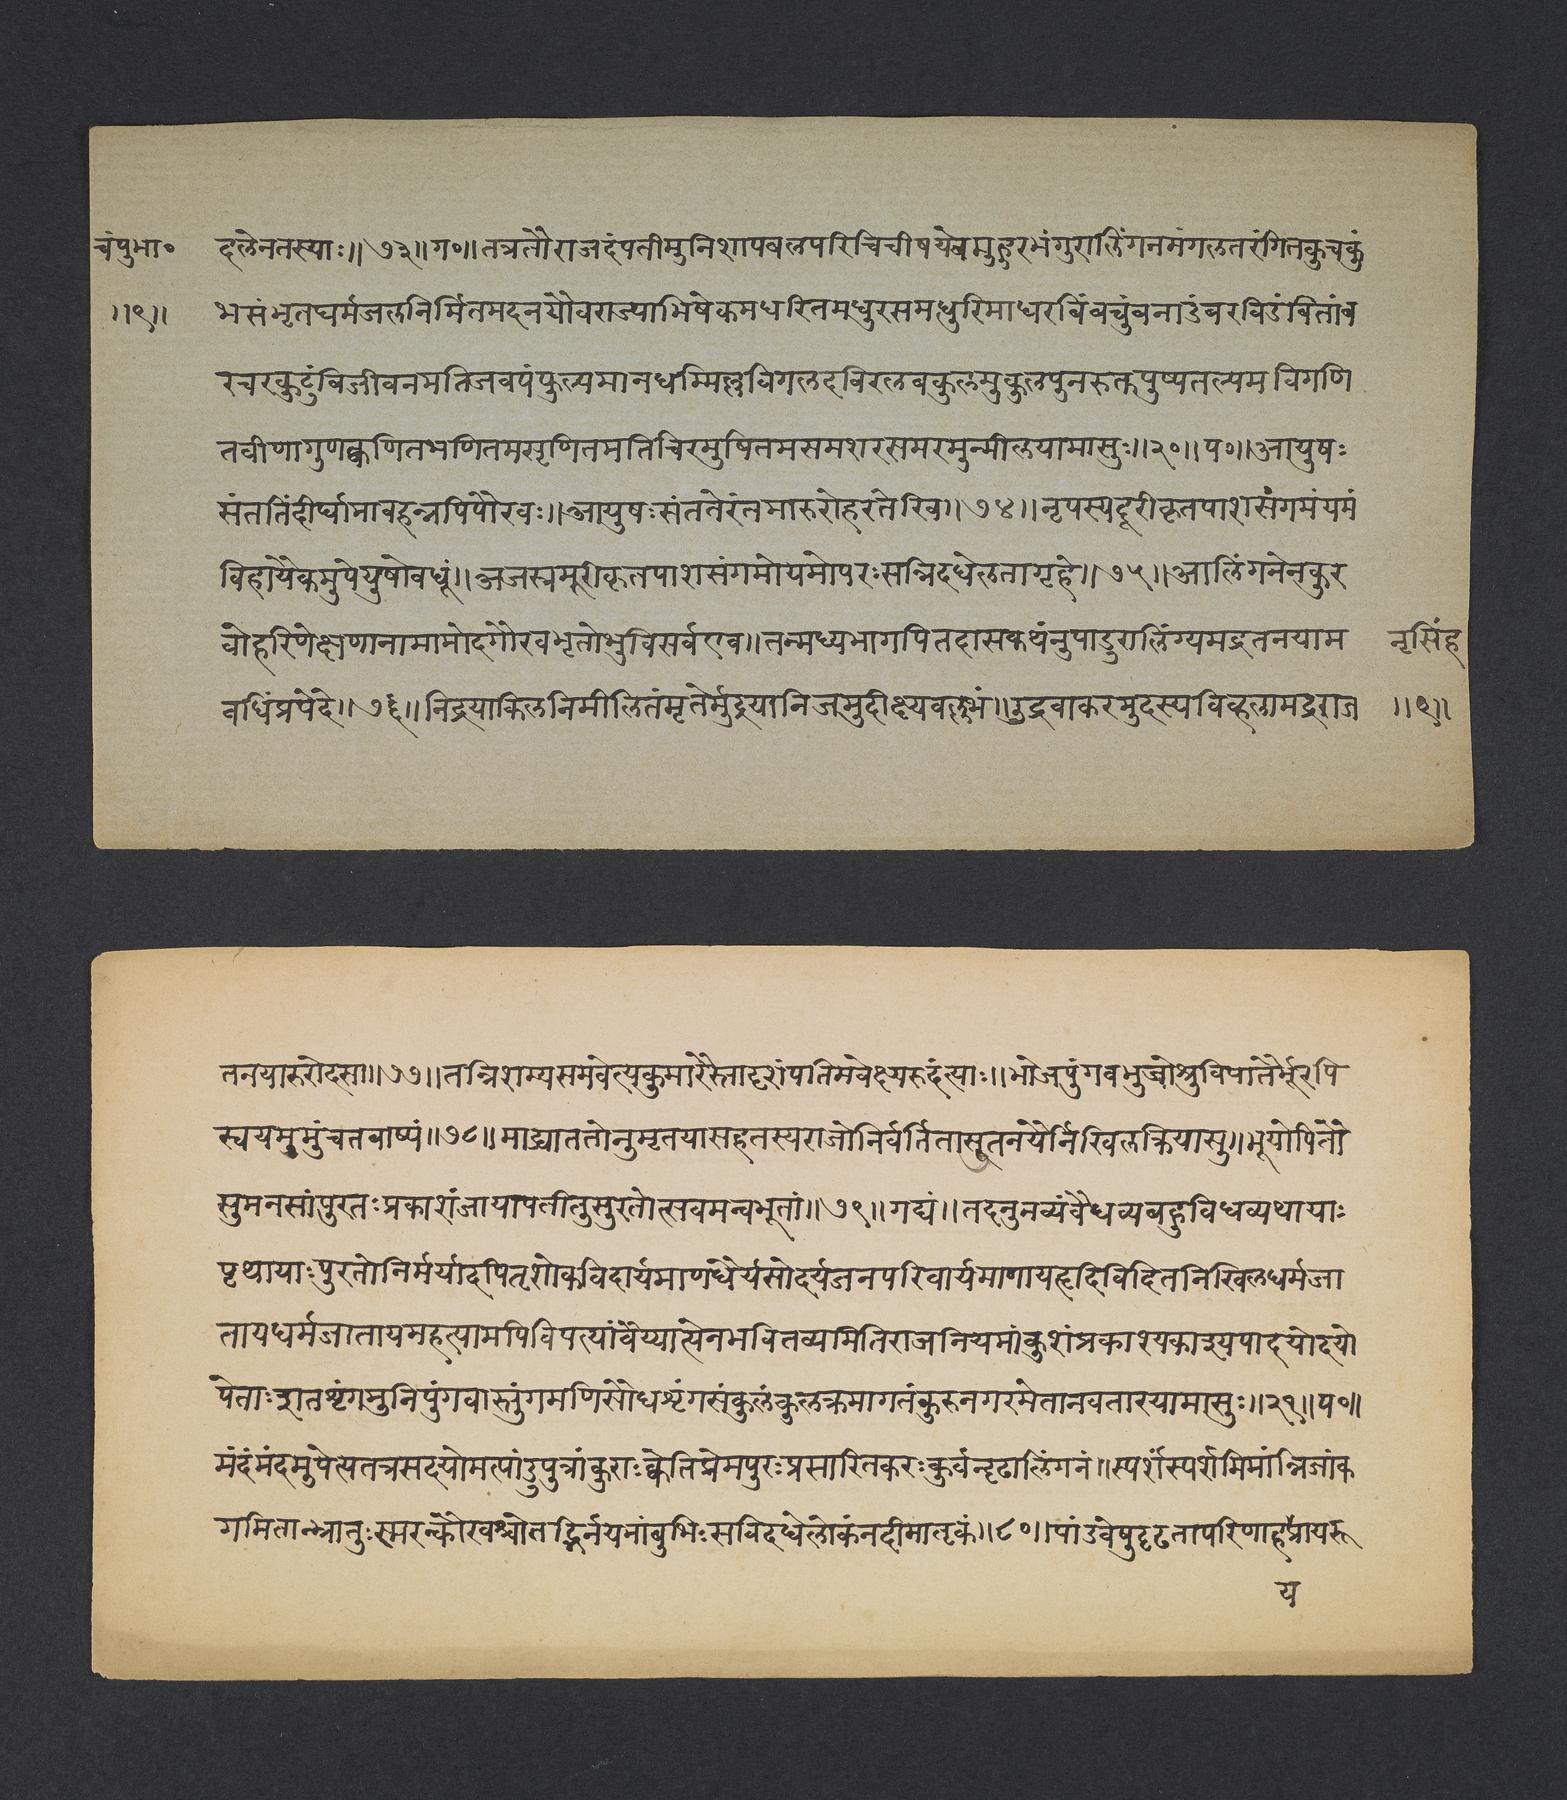 चंपुभा॰ दलेनतस्याः॥७३॥ग॰॥तत्रतौराजदंपतीमुनिशापबलपरिचिचीषयेवमुहुरभंगुरालिंगनमंगलतरंगितकुचकुं
॥९॥ भसंभृतघर्मजलनिर्मितमदनयौवराज्याभिषेकमधरितमधुरसमधुरिमाधरबिंबचुंबनाडंबरविडंबितांब
रचरकुटुंबिजीवनमतिजवपंफुल्यमानधम्मिल्लविगलदविरलबकुलमुकुलपुनरुक्तपुष्पतल्पमविगणि
तवीणागुणक्वणितभणितमसृणितमतिचिरमुषितमसमशरसमरमुन्मीलयामासुः॥२०॥प॰॥आयुषः
संततिंदीर्घामावहन्नपिपौरवः॥आयुषःसंततेरंतमारुरोहरतेरिव॥७४॥नृपस्यदूरीकृतपाशसंगमंयमं
विहायैकमुपेयुषोवधूं॥अजस्रमूरीकृतपाशसंगमोयमोपरःसन्निदधेलतागृहे॥७५॥आलिंगनेनकुर
वोहरिणेक्षणानामामोदगौरवभृतोभुविसर्वएव॥तन्मध्यभागपितदासकथंनुपांडुरालिंग्यमद्रतनयाम नृसिंह
वधिंप्रपेदे॥७६॥निद्रयाकिलनिमीलितंमृतेर्मुद्रयानिजमुदीक्ष्यवल्लभं॥उद्रवाकरमुदस्यविव्हलामद्रराज ॥९॥
तनयारुरोदसा॥७७॥तन्निशम्यसमवेत्यकुमारैस्तादृशंपतिमवेक्ष्यरुदंत्याः॥भोजपुंगवभुवोश्रुविपातैर्भूरपि
स्वयममुंचतबाष्पं॥७८॥माद्र्याततोनुमृतयासहतस्यराज्ञोनिर्वर्तितासुतनयैर्निखिलक्रियासु॥भूयोपितौ
सुमनसांपुरतःप्रकाशंजायापतीतुसुरतोत्सवमन्वभूतां॥७९॥गद्यं॥तदनुनव्यंवैधव्यबहुविधव्यथायाः
पृथायाःपुरतोनिर्मर्यादपितृशोकविदार्यमाणधैर्यसोदर्यजनपरिवार्यमाणायहृदिविहितनिखिलधर्मजा
तायधर्मजातायमहत्यामपिविपत्यांवैय्यात्येनभवितव्यमितिराजनियमांकुशंप्रकाश्यकाश्यपादयोदयो
पेताःशतशृंगमुनिपुंगवास्तुंगमणिसौधशृंगसंकुलंकुलक्रमागतंकुरुनगरमेतानवतारयामासुः॥२१॥प॰॥
मंदंमंदमुपेत्यतत्रसदयोमत्पांडुपुत्रांकुराःक्वेतिप्रेमपुरःप्रसारितकरःकुर्वन्दृढालिंगनं॥स्पर्शंस्पर्शमिमांन्निजांक
गमितान्भ्रातुःस्मरन्कौरवश्च्योतद्भिर्नयनांबुभिःसविदधेलोकंनदीमातृकं॥८०॥पांडवेषुदृढतापरिणाहप्रायरू
य